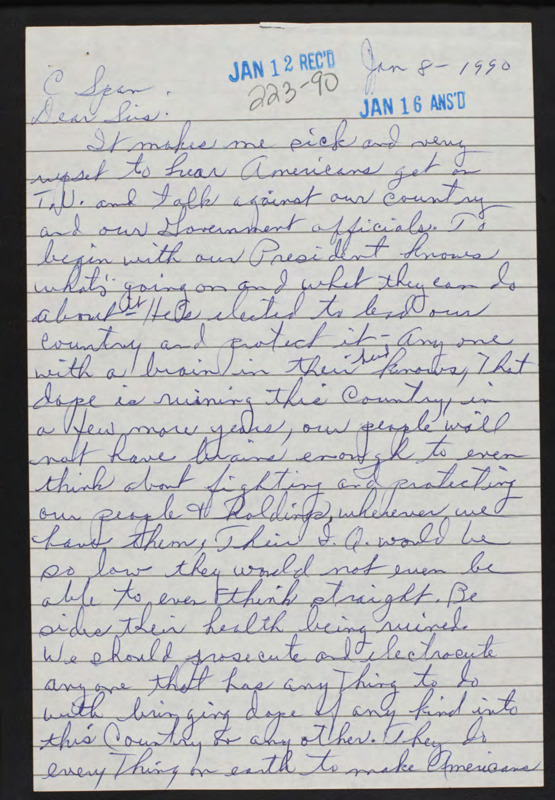 JAN 12 REC'D
Jan 8 - 1990
223-90
C Span.
JAN 16 ANS'D
Dear Sirs.
It makes me sick and very
upset to hear Americans get on
T.V. and talk against our country
and our Government officials. To
begin with our President knows
what's going on and what they can do
about it He's elected to lead our
country and protect it; any one
with a brain in their head knows, That
dope is ruining this Country, in
a few more years, our people will
not have brains enough to even
think about fighting and protecting
our people & holdings, wherever we
have them, Their I.Q. would be
so low they would not even be
able to even think straight. Be
side their health being ruined.
We should prosecute and electrocute
any one that has any Thing to do
with bringing dope of any kind into
this Country or any other. They do
every Thing on earth to make Americans